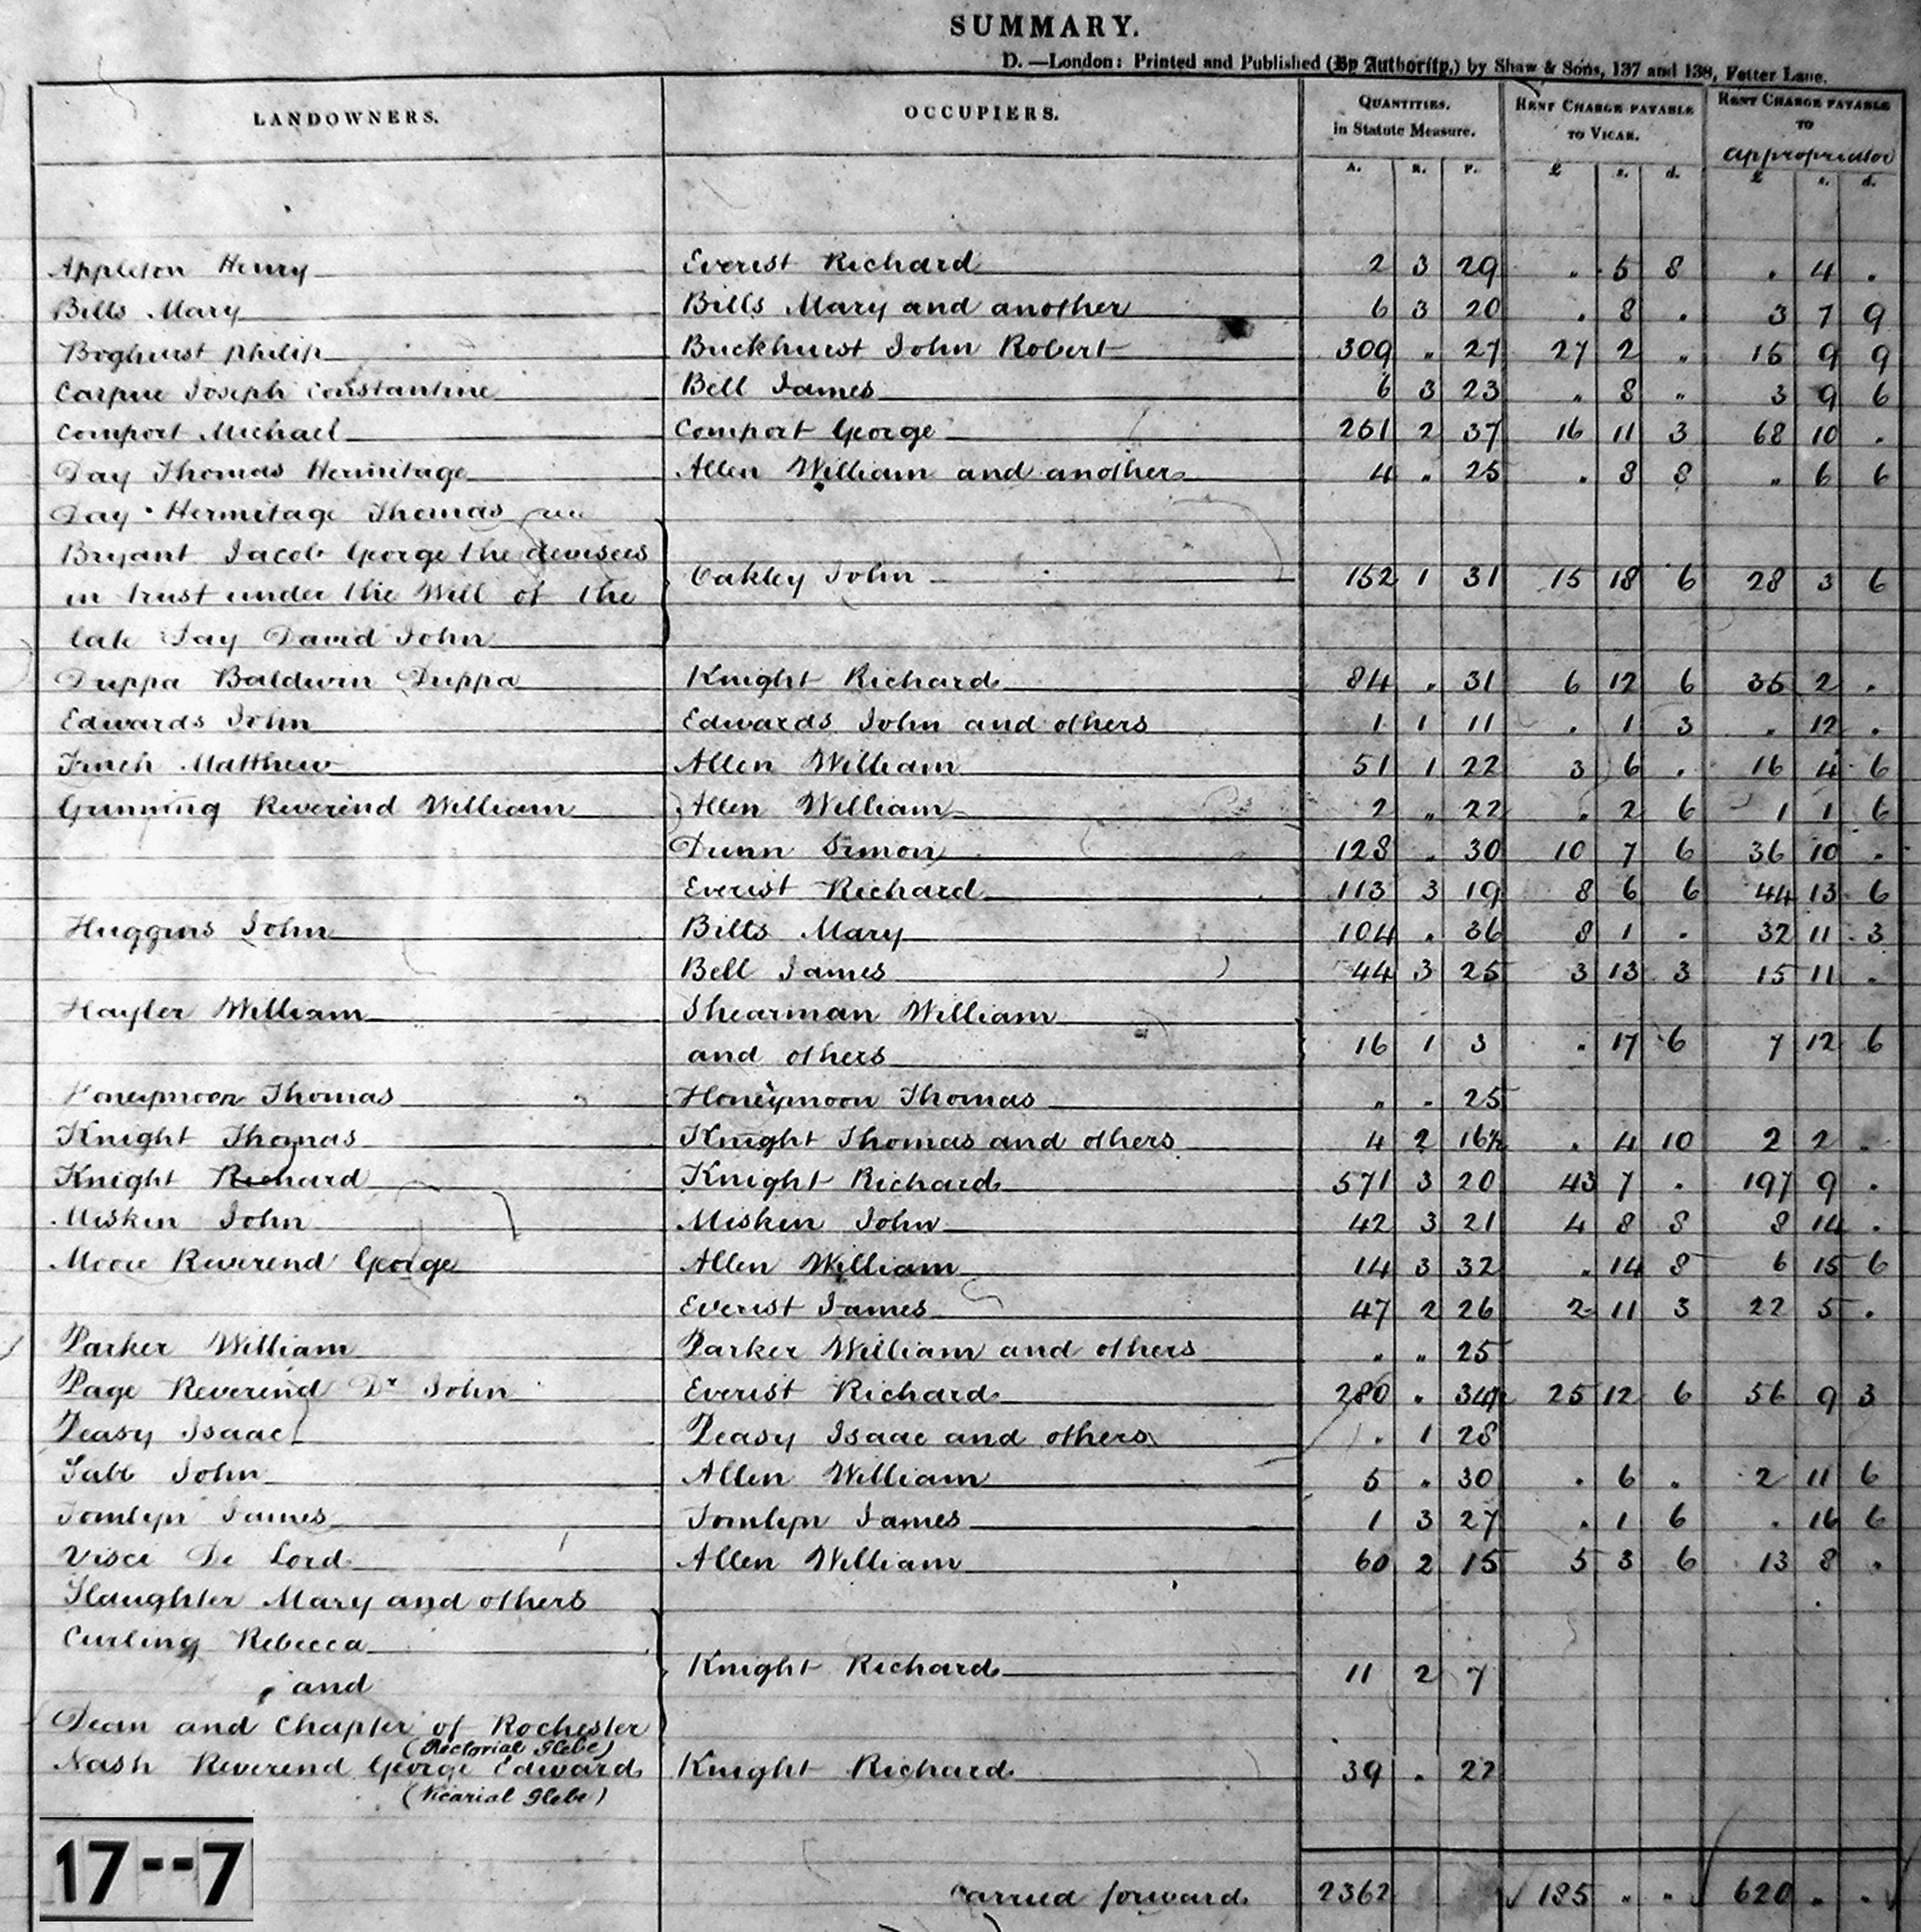 SUMMARY.
D. —London: Printed and Published (By Authority,) by Shaw & Sons, 137 and 138, Fetter Lane.
LANDOWNERS. OCCUPIERS. QUANTITIES. in Statute Measure. RENT CHARGE PAYABLE TO VICAR. RENT CHARGE PAYABLE TO appropriator
A. R. P. £ s. d. £ s. d.
Appleton Henry Everist Richard 2 3 29 . 5 8 . 4 .
Bills Mary Bills Mary and another 6 3 20 . 8 . 3 7 9
Boghurst Philip Buckhurst John Robert 309 " 27 27 2 " 15 9 9
Carpue Joseph Constantine Bell James 6 3 23 " 8 " 3 9 6
Comport Michael Comport George 261 2 37 16 11 3 68 10 .
Day Thomas Hermitage Allen William and another 4 " 25 . 8 8 " 6 6
Day Hermitage Thomas
Bryant Jacob George the devisees
in trust under the Will of the Oakley John 152 1 31 15 18 6 28 3 6
late Day David John
Duppa Baldwin Duppa Knight Richard 84 . 31 6 12 6 35 2 .
Edwards John Edwards John and others 1 1 11 . 1 3 " 12 .
Finch Matthew Allen William 51 1 22 3 6 . 16 4 6
Gunning Reverend William Allen William 2 " 22 . 2 6 1 1 6
Dunn Simon 128 . 30 10 7 6 36 10 .
Everist Richard 113 3 19 8 6 6 44 13 6
Huggins John Bills Mary 104 . 36 8 1 . 32 11 3
Bell James 44 3 25 3 13 3 15 11 .
Hayler William Shearman William
and others 16 1 3 . 17 6 7 12 6
Honeymoon Thomas Honeymoon Thomas " . 25
Knight Thomas Knight Thomas and others 4 2 16½ . 4 10 2 2 .
Knight Richard Knight Richard 571 3 20 43 7 . 197 9 .
Miskin John Miskin John 42 3 21 4 8 8 8 14 .
Moore Reverend George Allen William 14 3 32 . 14 8 6 15 6
Everist James 47 2 26 2 11 3 22 5 .
Parker William Parker William and others " " 25
Page Reverend Dr John Everist Richard 280 . 34½ 25 12 6 56 9 3
Peasy Isaac Peasy Isaac and others . 1 28
Sabb John Allen William 5 " 30 . 6 . 2 11 6
Tomlyn James Tomlyn James 1 3 27 . 1 6 . 16 6
Visci De Lord Allen William 60 2 15 5 3 6 13 8 .
Slaughter Mary and others
Curling Rebecca
and Knight Richard 11 2 7
Dean and Chapter of Rochester
(Rectorial Glebe)
Nash Reverend George Edward Knight Richard 39 . 22
(Vicarial Glebe)
17--7
Carried forward 2362 185 " " 620 " "